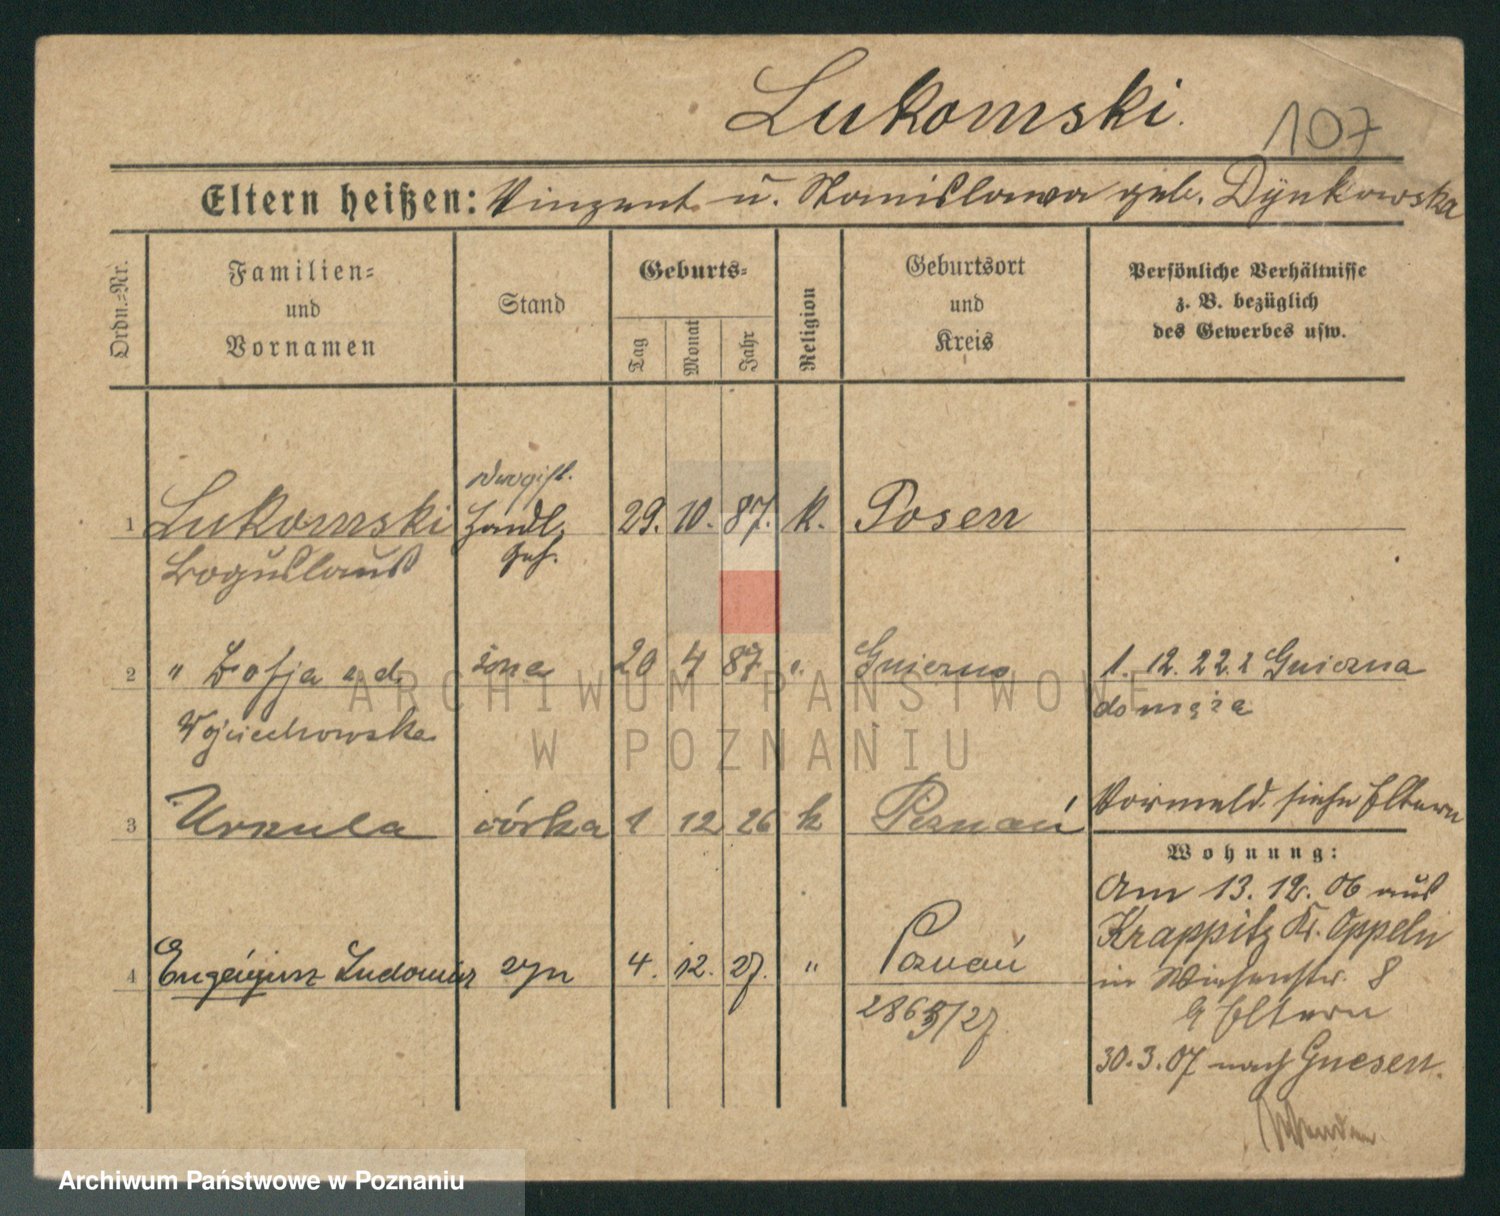 Lukomski.
107
Eltern heißen: Vinzent u. Stanislawa geb. Dynkowska
Ordn.=Nr.
Familien=
und
Vornamen
Stand
Geburts=
Tag
Monat
Jahr
Religion
Geburtsort
und
Kreis
Persönliche Verhältnisse
z. B. bezüglich
des Gewerbes usw.
Drogist.
1 Lukomski Handl. 29. 10. 87. k. Posen
Boguslaus Geh.
2 " Zofja z d. żona 20 4 87 " Gniezno 1. 12. 22. z Gniezna
Wojciechowska do męża
3 Urszula córka 1 12 26 k Poznań Vormeld. siehe Eltern
Wohnung:
Am 13. 12. 06 aus
Krappitz Kr. Oppeln
4 Eugenjusz Ludomir syn 4. 12. 27. " Poznań in Wiesenstr. 8
2865/27 b Eltern
30. 3. 07 nach Gnesen.
ARCHIWUM PAŃSTWOWE
W POZNANIU
Archiwum Państwowe w Poznaniu